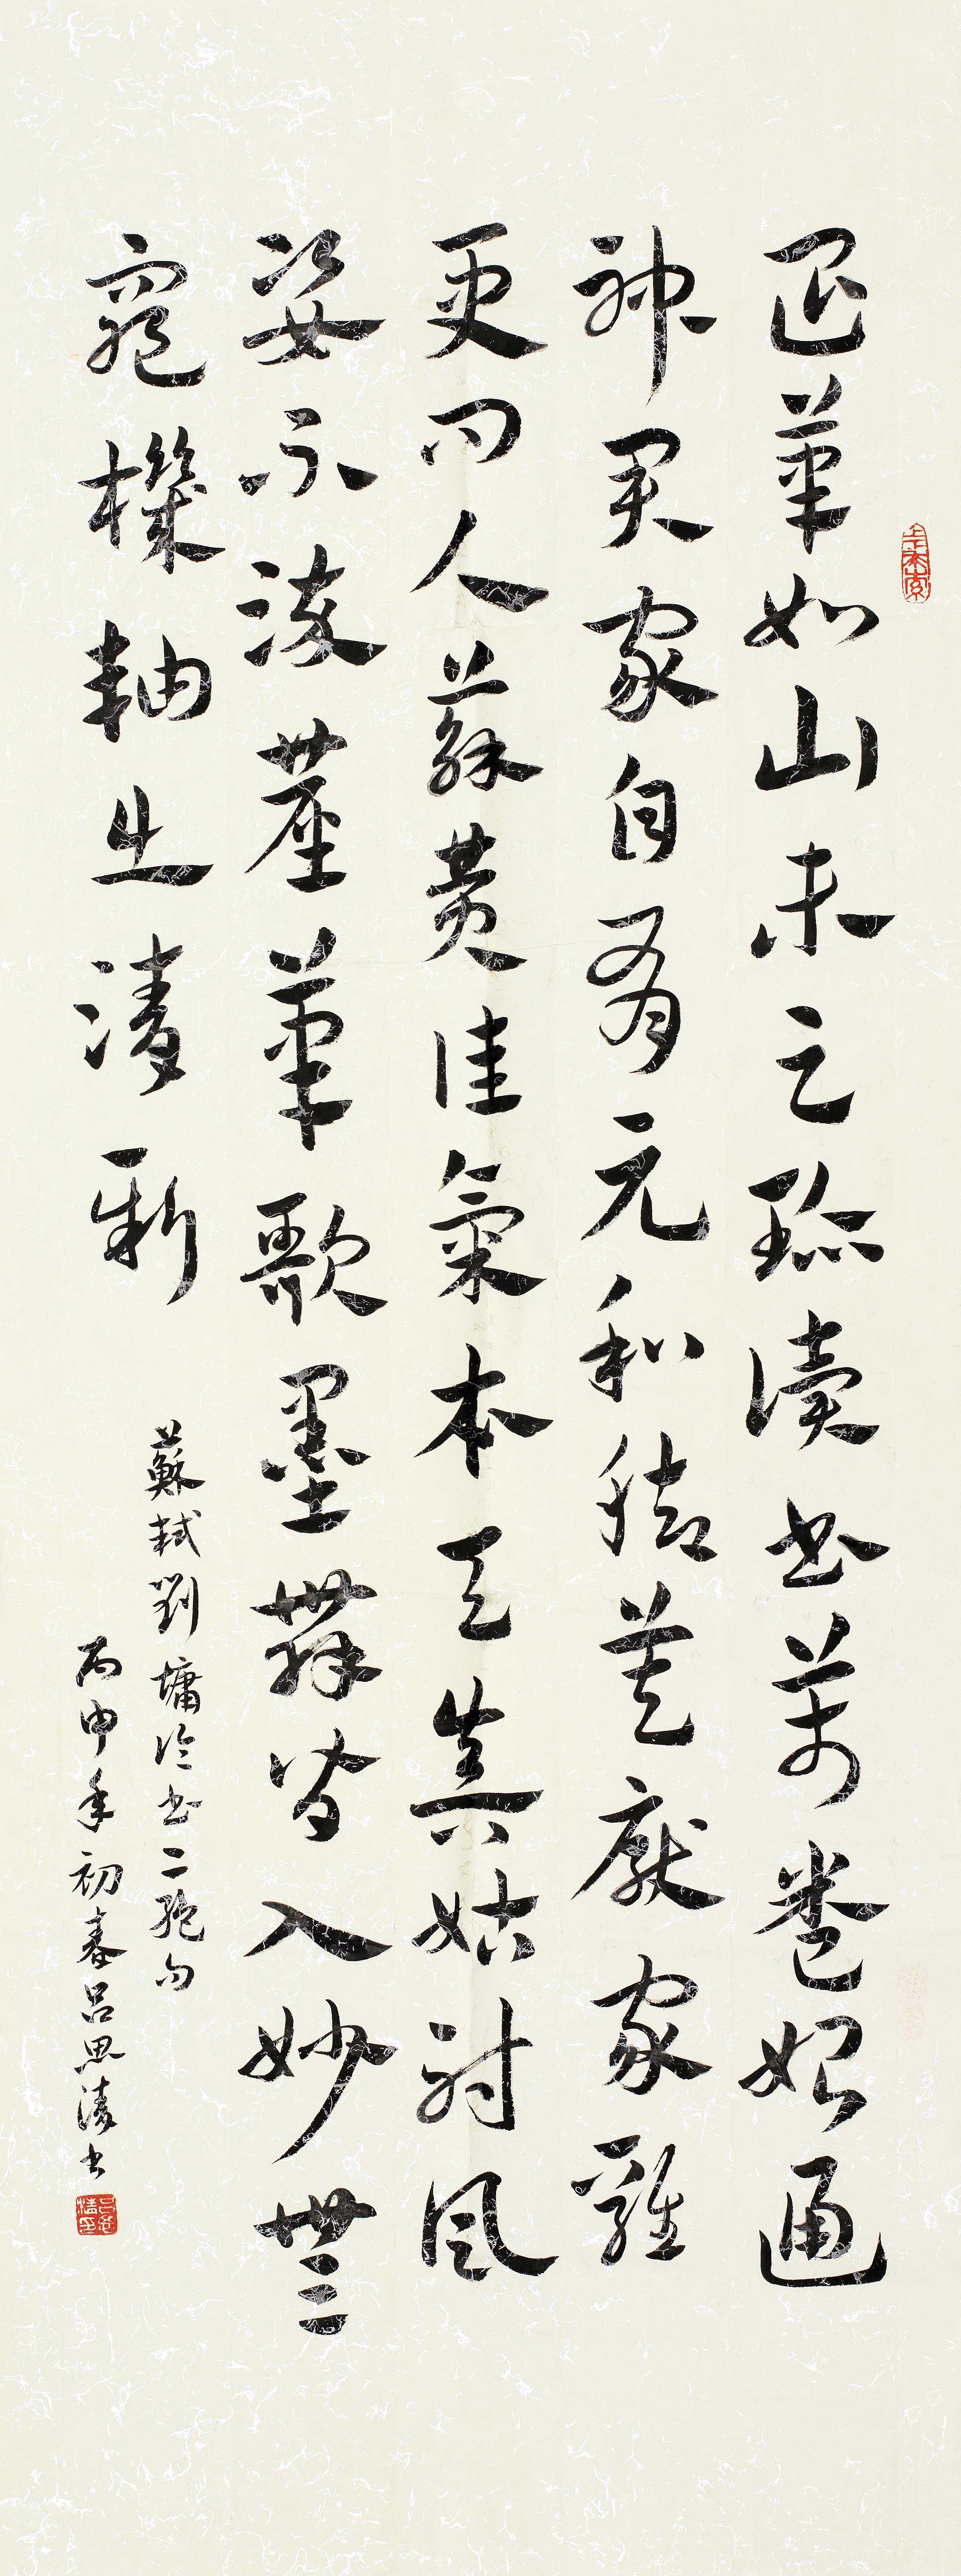 退筆如山未足珍讀書萬卷始通
神君家自有元和腳莫厭家雞
更問人蘇黃佳氣本天真姑射風
姿不染塵筆歌墨舞皆入妙無
窮機軸出清新
蘇軾劉墉論書二絕句
丙申年初春呂思清書